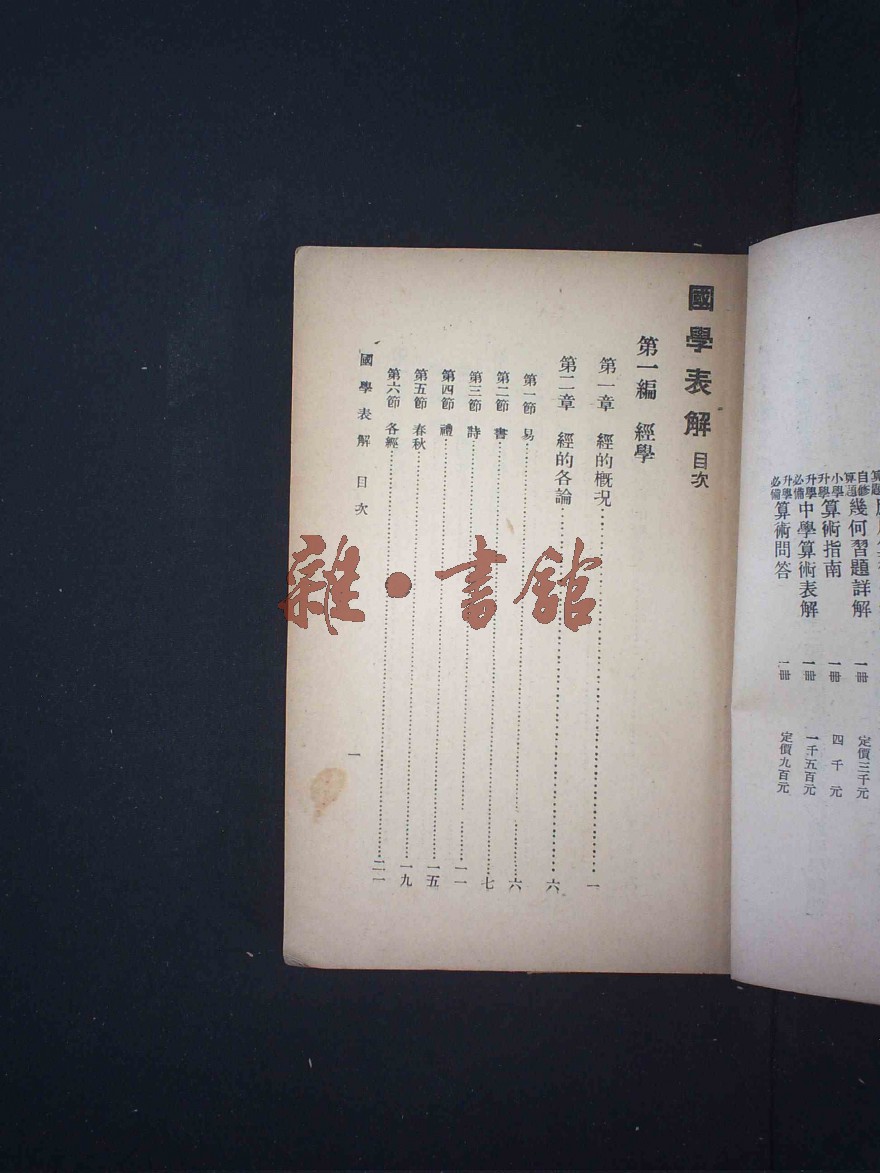 國學表解 目次
第一編 經學
第一章 經的概况 一
第二章 經的各論 六
第一節 易 六
第二節 書 七
第三節 詩 一一
第四節 禮 一五
第五節 春秋 一九
第六節 各經 二一
國學表解 目次 一
自修算題幾何習題詳解 一冊 定價三千元
小學升學算術指南 一冊 四千元
升學必備中學算術表解 一冊 一千五百元
升學必備算術問答 一冊 定價九百元
雜·書館